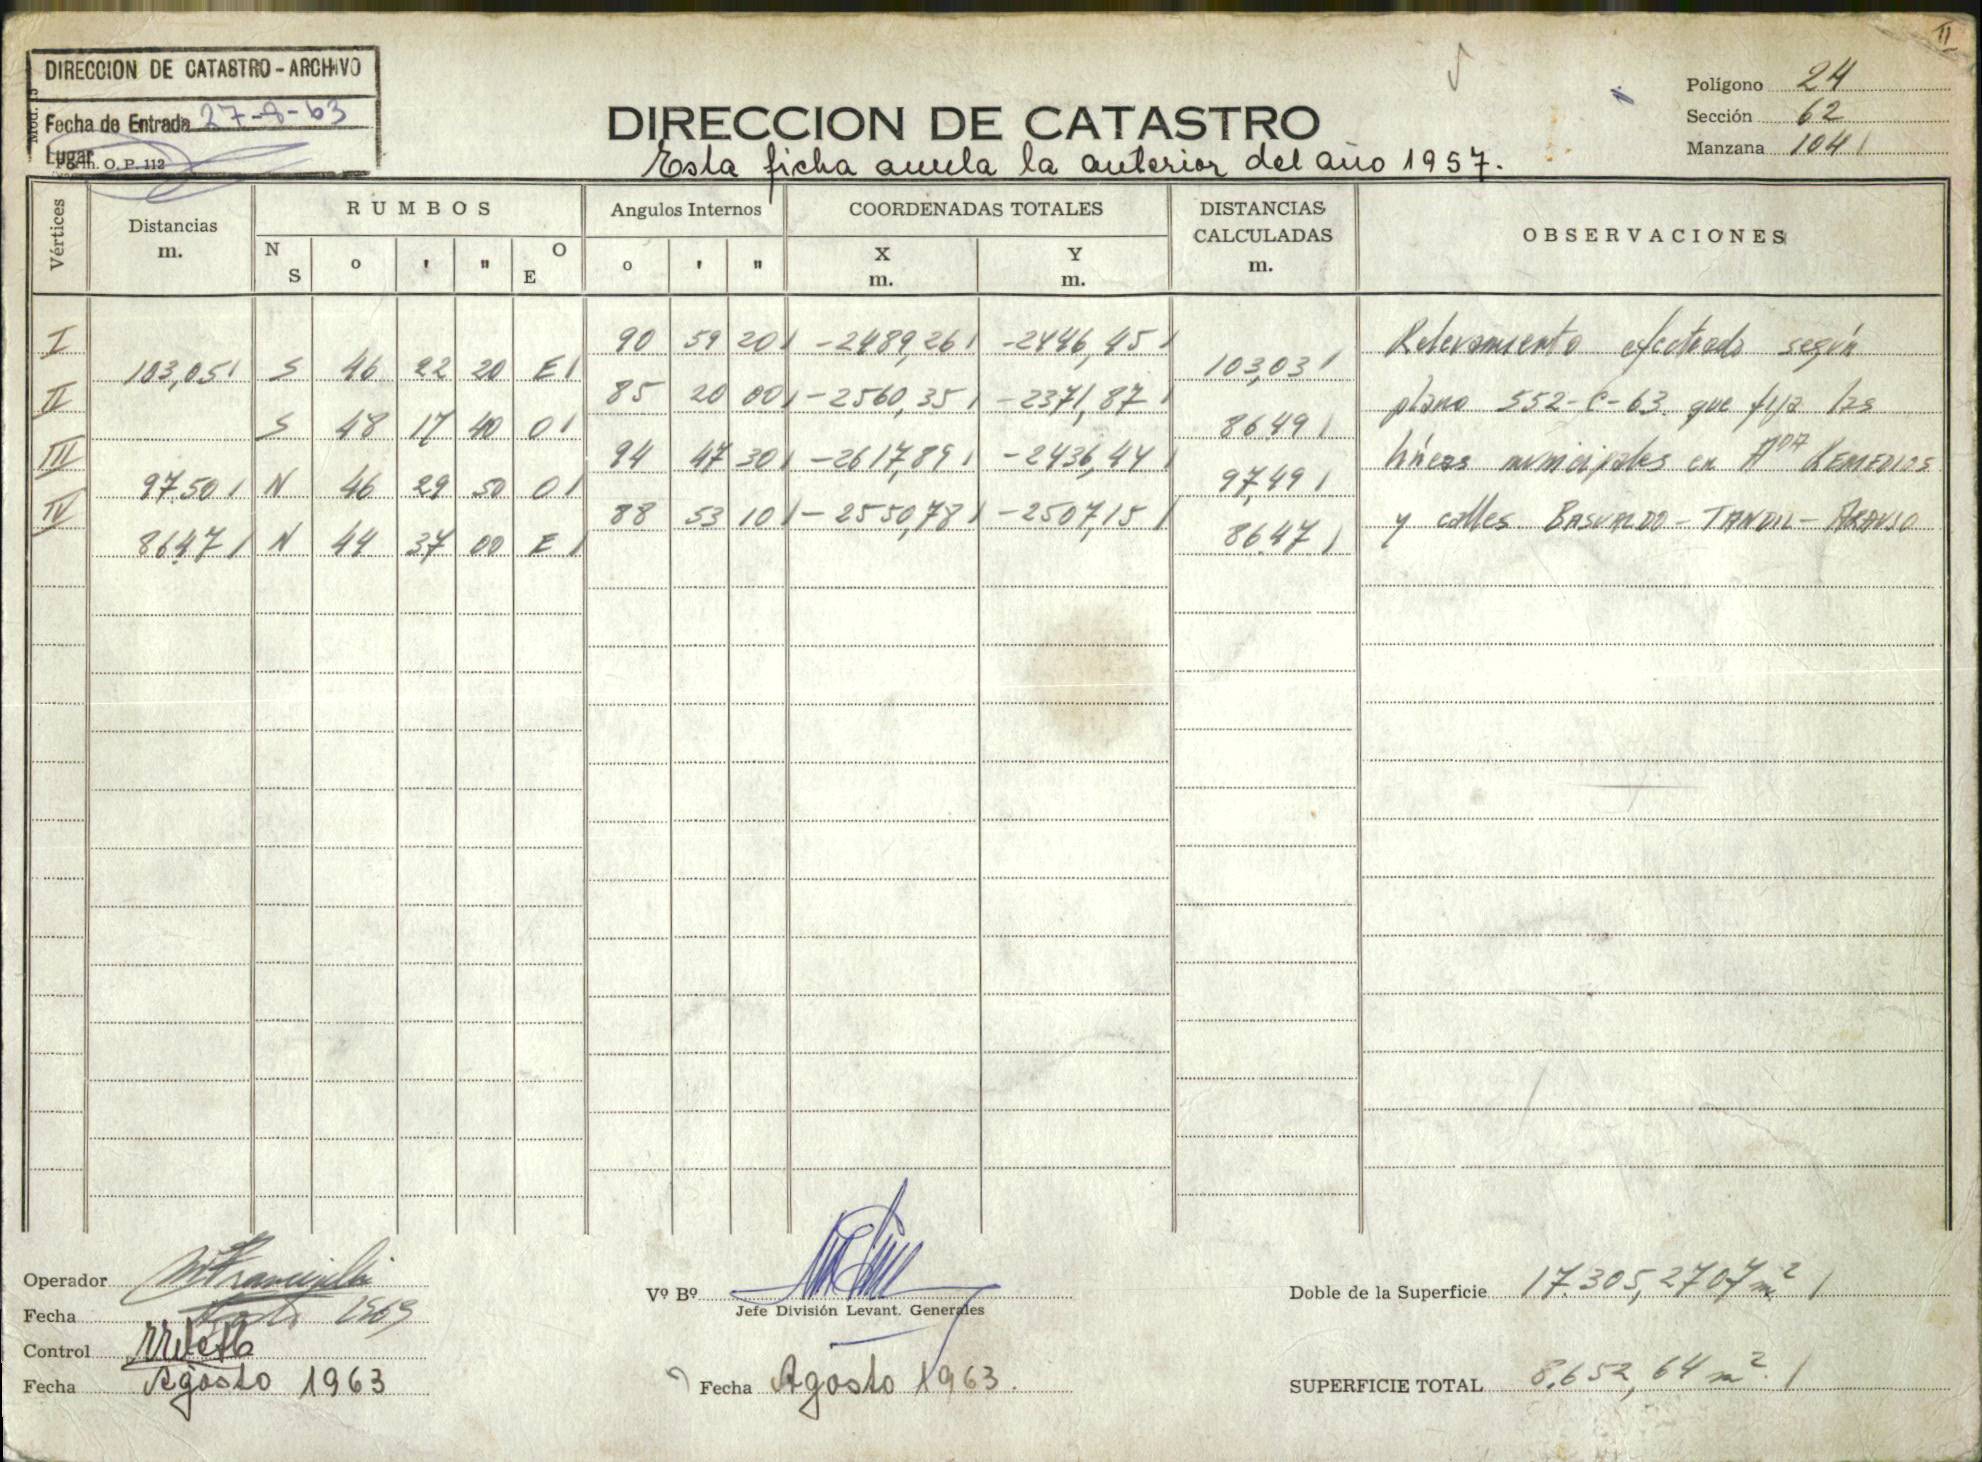 II
DIRECCION DE CATASTRO - ARCHIVO
Fecha de Entrada 27-8-63
Lugar
Form. O. P. 112
Mod. 13
DIRECCION DE CATASTRO
Esta ficha anula la anterior del año 1957.
Polígono 24
Sección 62
Manzana 104
Vértices
Distancias m.
RUMBOS
N S o ' " O E
Angulos Internos
o ' "
COORDENADAS TOTALES
X m. Y m.
DISTANCIAS CALCULADAS m.
OBSERVACIONES
I 90 59 20 -2489,26 -2446,45 Relevamiento efectuado según
103,05 S 46 22 20 E 103,03
II 85 20 00 -2560,35 -2371,87 plano 552-C-63 que fija las
S 48 17 40 O 86,49
III 94 47 30 -2617,89 -2436,44 líneas municipales en Ada REMEDIOS
97,50 N 46 29 50 O 97,49
IV 88 53 10 -2550,78 -2507,15 y calles BASUALDO - TANDIL - ARAUJO
86,47 N 44 37 00 E 86,47
Operador
Fecha Agosto 1963
Control
Fecha Agosto 1963
Vº Bº
Jefe División Levant. Generales
Fecha Agosto 1963.
Doble de la Superficie 17.305,2707 m²
SUPERFICIE TOTAL 8.652,64 m².